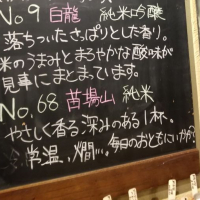 No 9 白龍 純米吟醸
落ちついたさっぱりとした香り。
米のうまみとまろやかな酸味が
見事にまとまっています。
No. 68 苗場山 純米
やさしく香る深みのある1杯。
常温、燗... 毎日のおともにいかが?